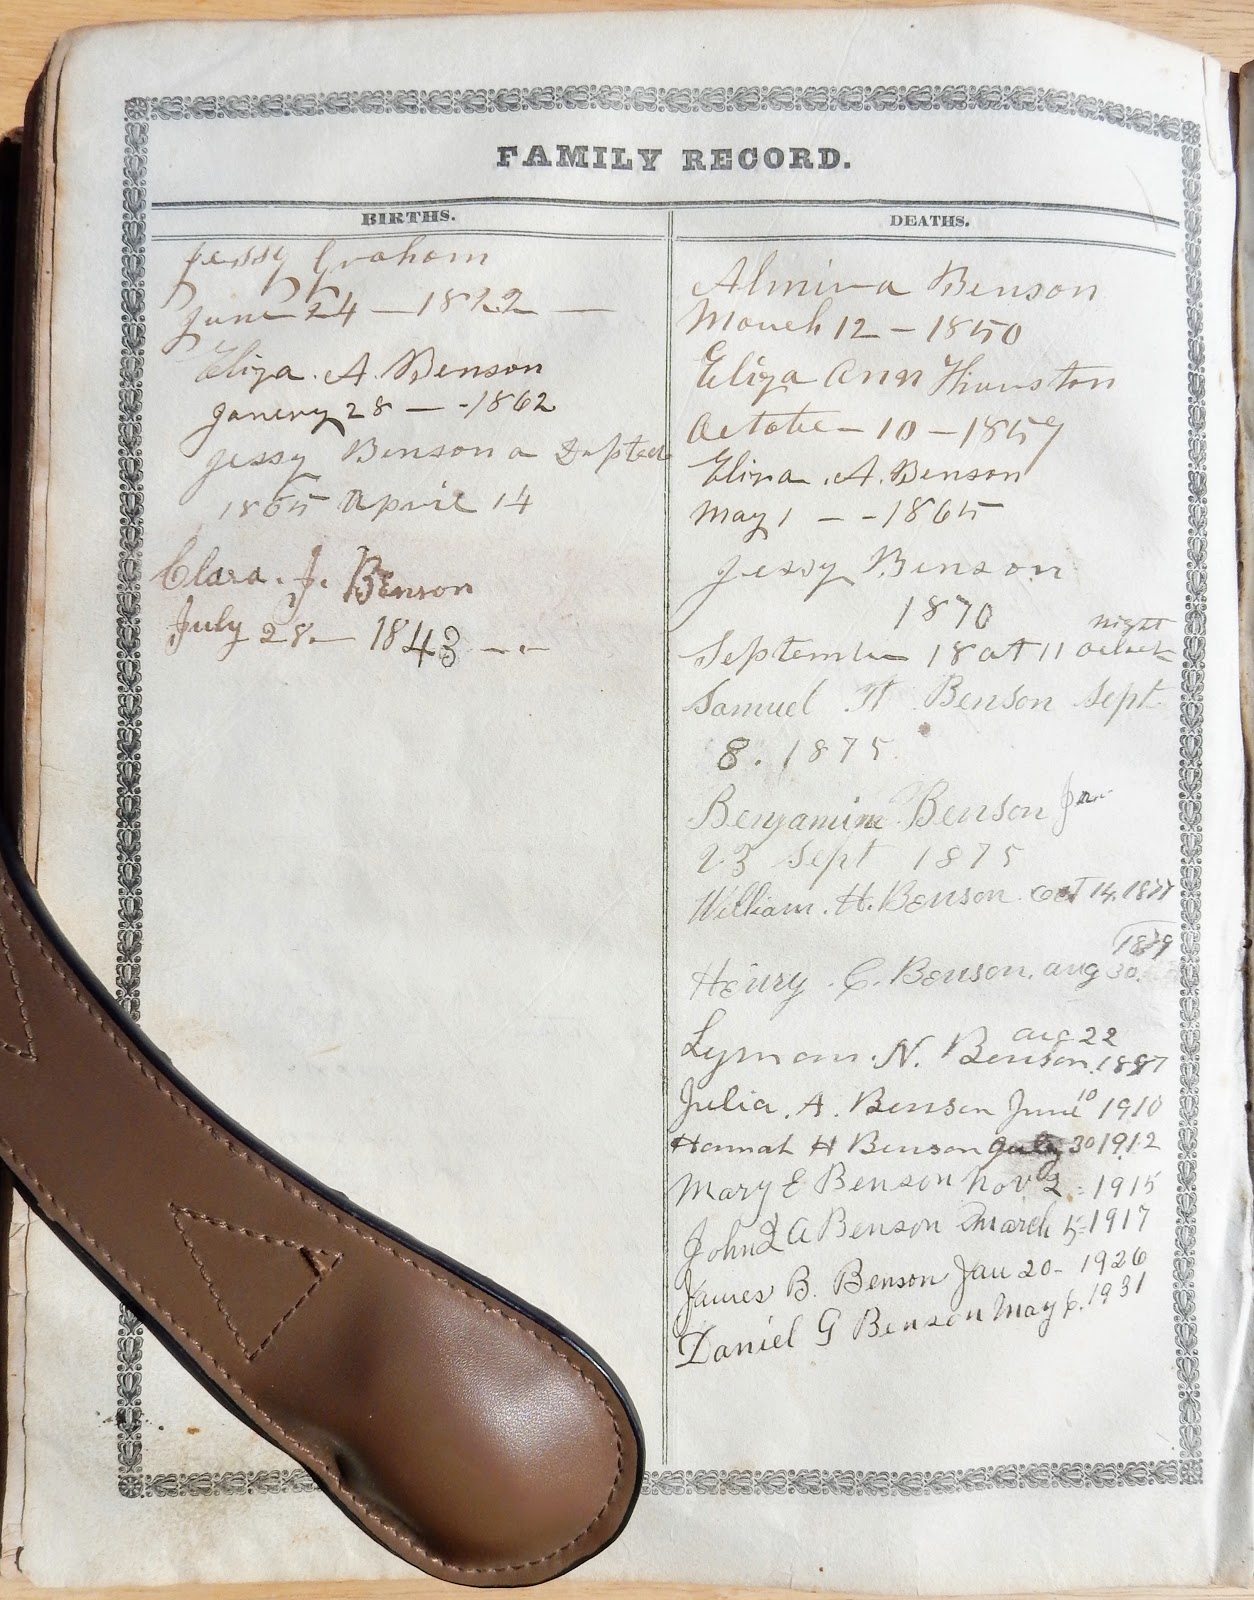 FAMILY RECORD.
BIRTHS.
Jessy Graham
June 24 — 1822 —
Eliza. A. Benson
Janery 28 — - 1862
Jessy Benson a
1865 April 14
Clara. J. Benson
July 28. — 1843 - - -
DEATHS.
Almira Benson
March 12 — 1850
Eliza Ann
October — 10 — 1857
Eliza. A. Benson
May 1 — - 1865
Jessy Benson
1870
night
September 18 at 11 oclock
Samuel H Benson Sept
8. 1875
Benjamin Benson Jnr
23 Sept 1875
William. H. Benson. Oct 14. 1877
1879
Henry. C. Benson. aug 30.
aug 22
Lyman. N. Benson. 1887
Julia. A. Benson June 10 1910
Hannah H Benson July 30 1912
Mary E Benson Nov 2 - 1915
John A Benson March 5 - 1917
James B. Benson Jan 20 - 1926
Daniel G Benson May 6. 1931